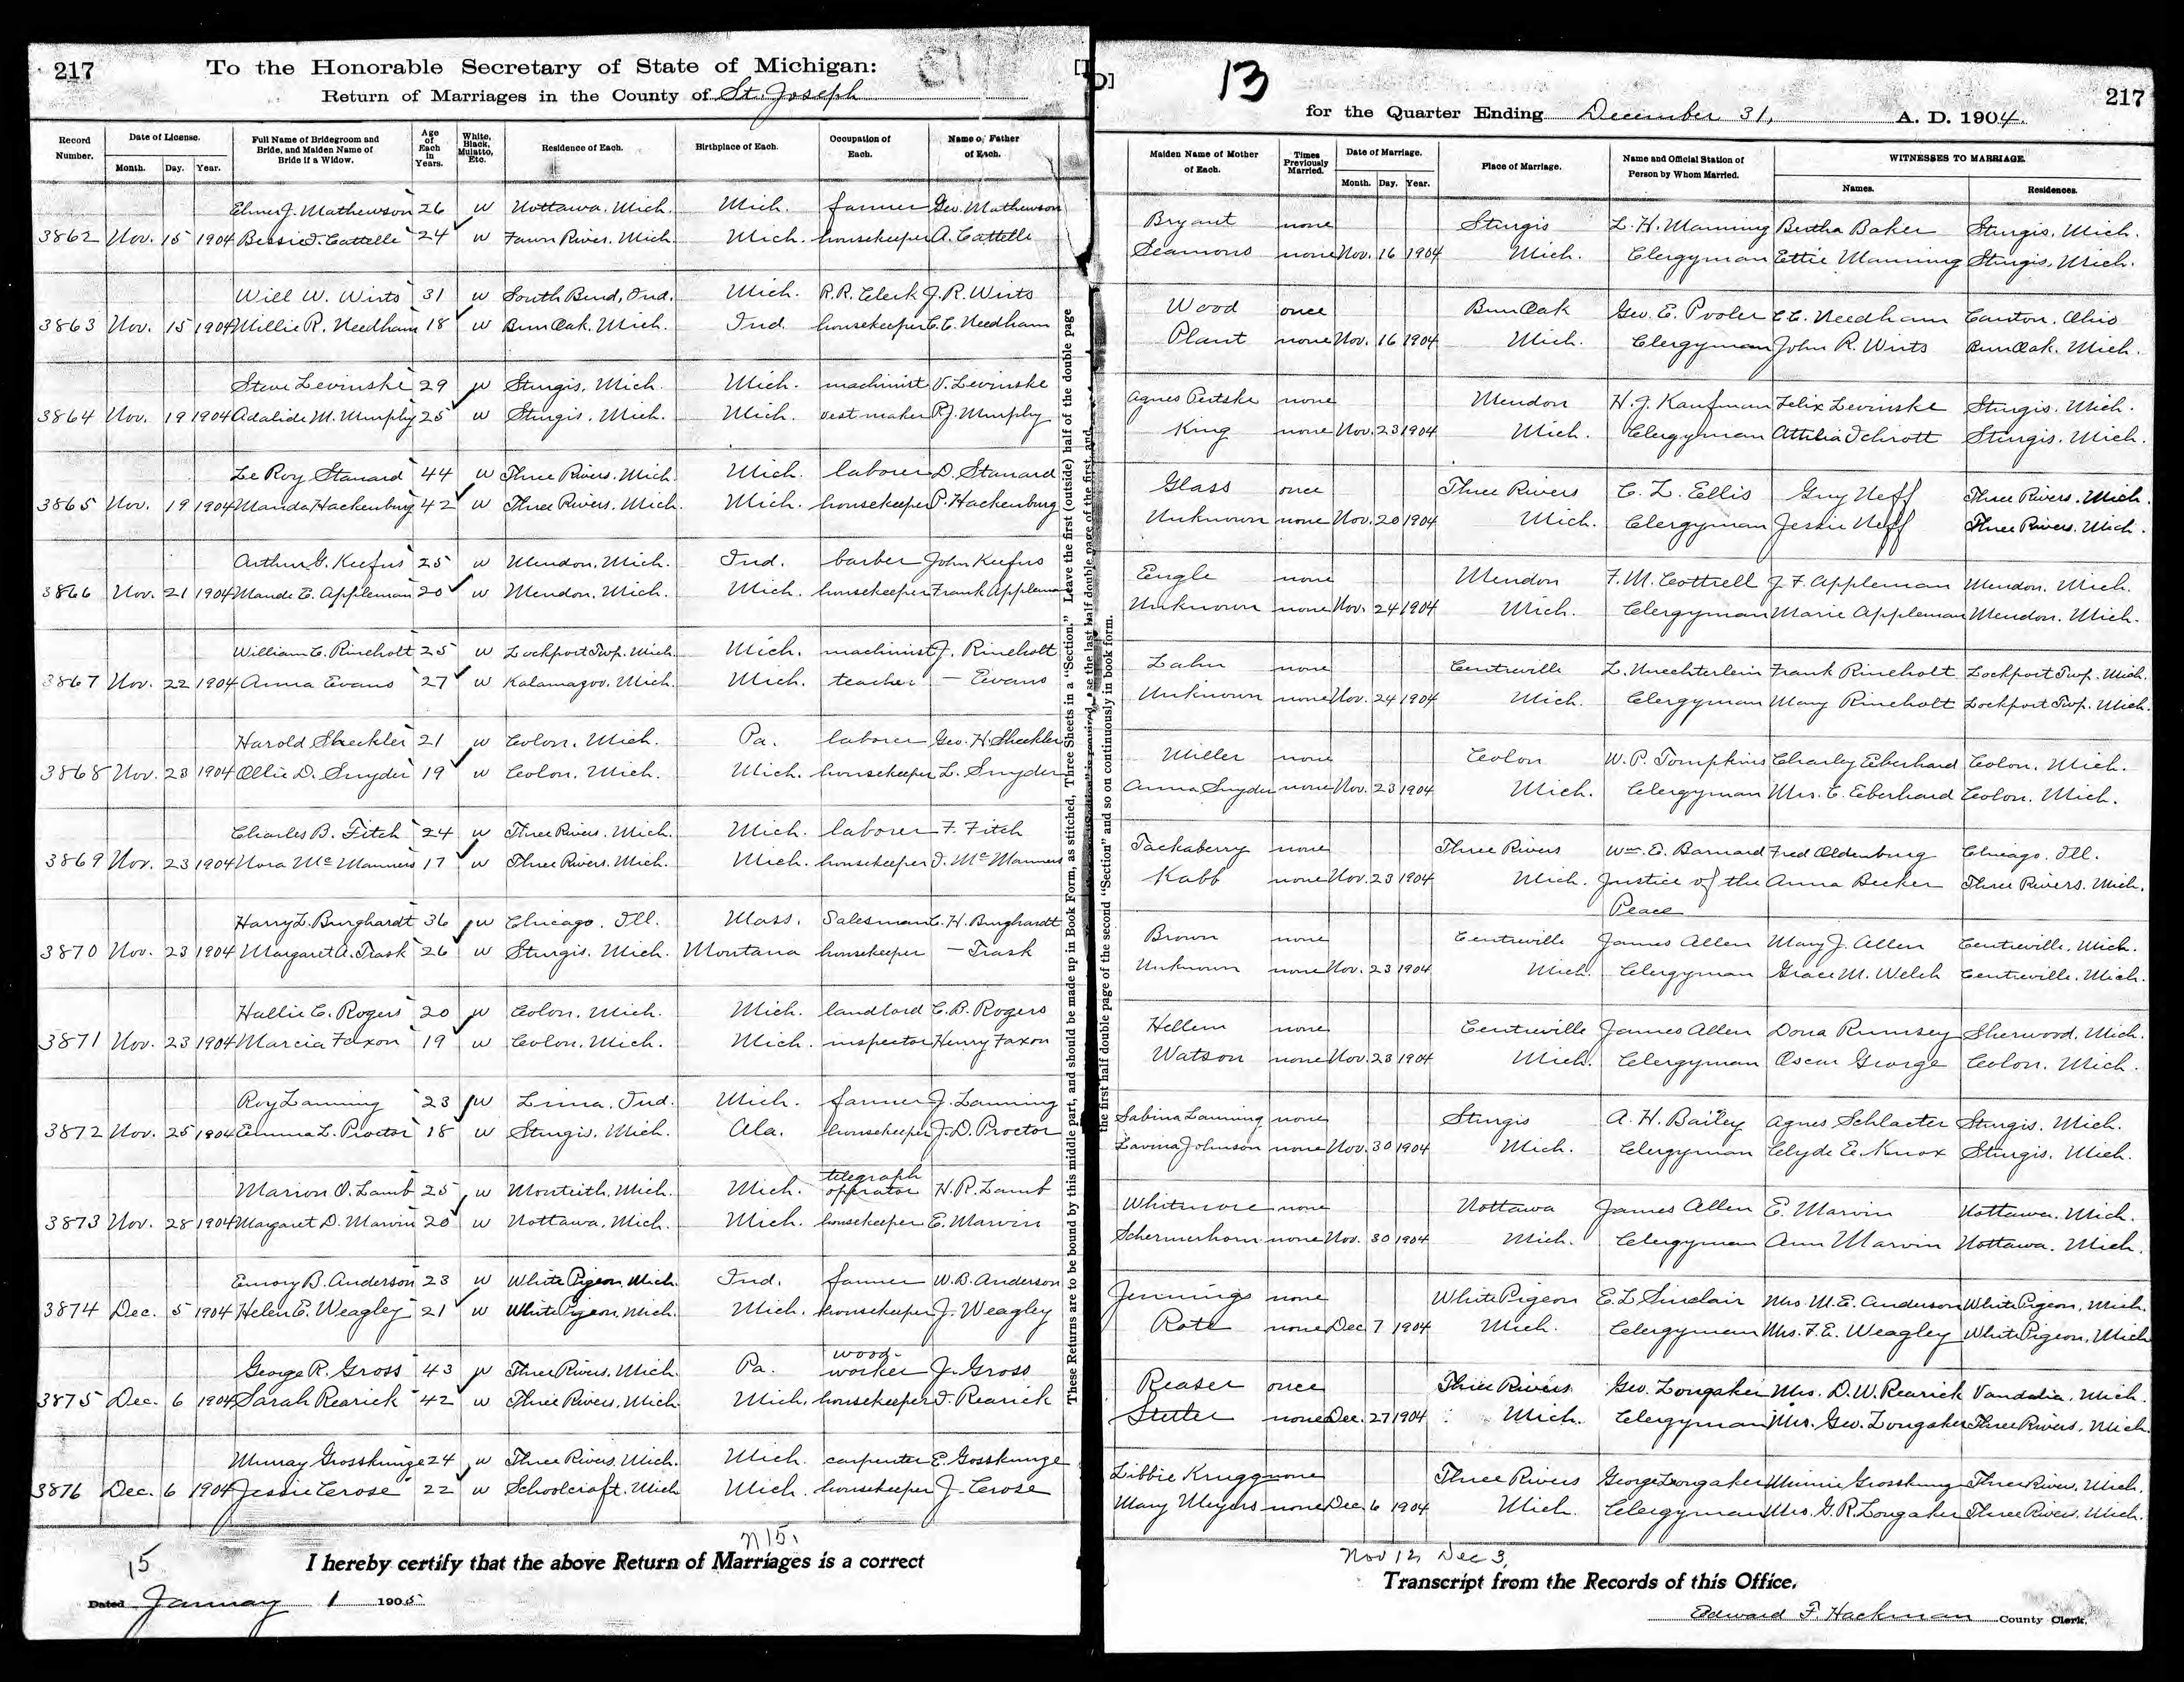 217
To the Honorable Secretary of State of Michigan:
Return of Marriages in the County of St. Joseph
Record Number. Date of License. Month. Day. Year. Full Name of Bridegroom and Bride, and Maiden Name of Bride if a Widow. Age of Each in Years. White, Black, Mulatto, Etc. Residence of Each. Birthplace of Each. Occupation of Each. Name of Father of Each.
Elmer J. Mathewson 26 W Nottawa, Mich. Mich. farmer Geo. Mathewson
3862 Nov. 15 1904 Bessie I. Cattelle 24 W Fawn River, Mich. Mich. housekeeper A. Cattelle
Will W. Wirts 31 W South Bend, Ind. Mich. R.R. Clerk J. R. Wirts
3863 Nov. 15 1904 Millie R. Needham 18 W Burr Oak, Mich. Ind. housekeeper C. C. Needham
Steve Levinske 29 W Sturgis, Mich. Mich. machinist V. Levinske
3864 Nov. 19 1904 Adalide M. Murphy 25 W Sturgis, Mich. Mich. vest maker P. J. Murphy
Le Roy Stanard 44 W Three Rivers, Mich. Mich. laborer D. Stanard
3865 Nov. 19 1904 Manda Hackenburg 42 W Three Rivers, Mich. Mich. housekeeper P. Hackenburg
Arthur G. Keefus 25 W Mendon, Mich. Ind. barber John Keefus
3866 Nov. 21 1904 Maude E. Appleman 20 W Mendon, Mich. Mich. housekeeper Frank Appleman
William C. Rineholt 25 W Lockport Twp. Mich. Mich. machinist J. Rineholt
3867 Nov. 22 1904 Anna Evans 27 W Kalamazoo, Mich. Mich. teacher — Evans
Harold Sheckler 21 W Colon, Mich. Pa. laborer Geo. H. Sheckler
3868 Nov. 23 1904 Ollie D. Snyder 19 W Colon, Mich. Mich. housekeeper L. Snyder
Charles B. Fitch 24 W Three Rivers, Mich. Mich. laborer F. Fitch
3869 Nov. 23 1904 Nora McManners 17 W Three Rivers, Mich. Mich. housekeeper I. McManners
Harry L. Burghardt 36 W Chicago, Ill. Mass. Salesman C. H. Burghardt
3870 Nov. 23 1904 Margaret A. Trask 26 W Sturgis, Mich. Montana housekeeper — Trask
Hallie C. Rogers 20 W Colon, Mich. Mich. landlord C. B. Rogers
3871 Nov. 23 1904 Marcia Faxon 19 W Colon, Mich. Mich. inspector Henry Faxon
Roy Lanning 23 W Lima, Ind. Mich. farmer J. Lanning
3872 Nov. 25 1904 Emma L. Proctor 18 W Sturgis, Mich. Ala. housekeeper J. D. Proctor
Marion O. Lamb 25 W Monteith, Mich. Mich. telegraph operator H. R. Lamb
3873 Nov. 28 1904 Margaret D. Marvin 20 W Nottawa, Mich. Mich. housekeeper E. Marvin
Emory B. Anderson 23 W White Pigeon, Mich. Ind. farmer W. B. Anderson
3874 Dec. 5 1904 Helen E. Weagley 21 W White Pigeon, Mich. Mich. housekeeper J. Weagley
George R. Gross 43 W Three Rivers, Mich. Pa. wood-worker J. Gross
3875 Dec. 6 1904 Sarah Rearick 42 W Three Rivers, Mich. Mich. housekeeper I. Rearick
Murray Grosskunge 24 W Three Rivers, Mich. Mich. carpenter E. Gosskunge
3876 Dec. 6 1904 Jessie Cerose 22 W Schoolcraft, Mich Mich. housekeeper J. Cerose
n 15.
15
I hereby certify that the above Return of Marriages is a correct
Dated January 1 1905
These Returns are to be bound by this middle part, and should be made up in Book Form, as stitched, Three Sheets in a "Section." Leave the first (outside) half of the double page
the first half double page of the second "Section" and so on continuously in book form.
13
217
for the Quarter Ending December 31, A. D. 1904.
Maiden Name of Mother of Each. Times Previously Married. Date of Marriage. Month. Day. Year. Place of Marriage. Name and Official Station of Person by Whom Married. WITNESSES TO MARRIAGE. Names. Residences.
Bryant none Sturgis L. H. Manning Bertha Baker Sturgis, Mich.
Seamons none Nov. 16 1904 Mich. Clergyman Ettie Manning Sturgis, Mich.
Wood once Burr Oak Geo. E. Pooler C. C. Needham Canton, Ohio
Plant none Nov. 16 1904 Mich. Clergyman John R. Wirts Burr Oak, Mich.
Agnes Pertske none Mendon H. J. Kaufman Felix Levinske Sturgis, Mich.
King none Nov. 23 1904 Mich. Clergyman Attilia Schrott Sturgis, Mich.
Glass once Three Rivers C. L. Ellis Guy Neff Three Rivers, Mich.
Unknown none Nov. 20 1904 Mich. Clergyman Jessie Neff Three Rivers, Mich.
Engle none Mendon F. M. Cottrell J. F. Appleman Mendon, Mich.
Unknown none Nov. 24 1904 Mich. Clergyman Marie Appleman Mendon, Mich.
Lahn none Centreville L. Nuechterlein Frank Rineholt Lockport Twp. Mich.
Unknown none Nov. 24 1904 Mich. Clergyman Mary Rineholt Lockport Twp. Mich.
Miller none Colon W. P. Tompkins Charley Eberhard Colon, Mich.
Anna Snyder none Nov. 23 1904 Mich. Clergyman Mrs. C. Eberhard Colon, Mich.
Tackaberry none Three Rivers Wm. E. Barnard Fred Oldenburg Chicago, Ill.
Kabb none Nov. 23 1904 Mich. Justice of the Peace Anna Becker Three Rivers, Mich.
Brown none Centreville James Allen Mary J. Allen Centreville, Mich.
Unknown none Nov. 23 1904 Mich. Clergyman Grace M. Welch Centreville, Mich.
Hellem none Centreville James Allen Dona Rumsey Sherwood, Mich.
Watson none Nov. 23 1904 Mich. Clergyman Oscar George Colon, Mich.
Sabina Lanning none Sturgis A. H. Bailey Agnes Schlaeter Sturgis, Mich.
Lavina Johnson none Nov. 30 1904 Mich. Clergyman Clyde E. Knox Sturgis, Mich.
Whitmore none Nottawa James Allen E. Marvin Nottawa, Mich.
Schermerhorn none Nov. 30 1904 Mich. Clergyman Ann Marvin Nottawa, Mich.
Jennings none White Pigeon E. L. Sinclair Mrs. M. E. Anderson White Pigeon, Mich.
Rote none Dec 7 1904 Mich. Clergyman Mrs. F. E. Weagley White Pigeon, Mich
Reaser once Three Rivers Geo. Longaker Mrs. D. W. Rearick Vandalia, Mich.
Stetler none Dec. 27 1904 Mich. Clergyman Mrs. Geo. Longaker Three Rivers, Mich.
Libbie Krugg none Three Rivers George Longaker Minnie Grosskung Three Rivers, Mich.
Mary Meyers none Dec. 6 1904 Mich. Clergyman Mrs. G. R. Longaker Three Rivers, Mich.
Nov 12, Dec 3,
Transcript from the Records of this Office.
Edward F. Hackman County Clerk.